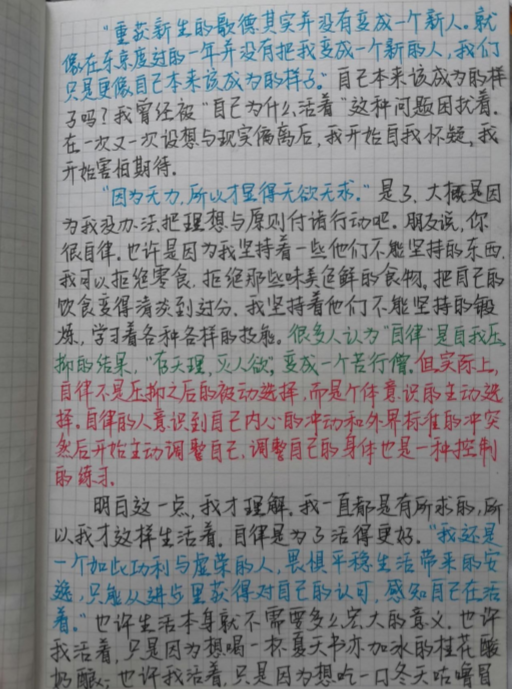 “重获新生的歌德其实并没有变成一个新人。就
像在东京度过的一年并没有把我变成一个新的人，我们
只是更像自己本来该成为的样子。”自己本来该成为的样
子吗？我曾经被“自己为什么活着”这种问题困扰着。
在一次又一次设想与现实偏离后，我开始自我怀疑，我
开始害怕期待。
“因为无力，所以才显得无欲无求。”是了，大概是因
为我没办法把理想与原则付诸行动吧。朋友说，你
很自律。也许是因为我坚持着一些他们不能坚持的东西。
我可以拒绝零食，拒绝那些味美色鲜的食物，把自己的
饮食变得清淡到过分，我坚持着他们不能坚持的锻
炼，学习着各种各样的技能。很多人认为“自律”是自我压
抑的结果，“存天理，灭人欲”，变成一个苦行僧。但实际上，
自律不是压抑之后的被动选择，而是个体意识的主动选
择。自律的人意识到自己内心的冲动和外界标准的冲突
然后开始主动调整自己，调整自己的身体也是一种控制
的练习。
明白这一点，我才理解，我一直都是有所求的，所
以我才这样生活着，自律是为了活得更好。“我还是
一个如此功利与虚荣的人，畏惧平稳生活带来的安
逸，只能从进步里获得对自己的认可，感知自己在活
着。”也许生活本身就不需要多么宏大的意义，也许
我活着，只是因为想喝一杯夏天书亦加冰的桂花酸
奶酿；也许我活着，只是因为想吃一口冬天咕嘟冒